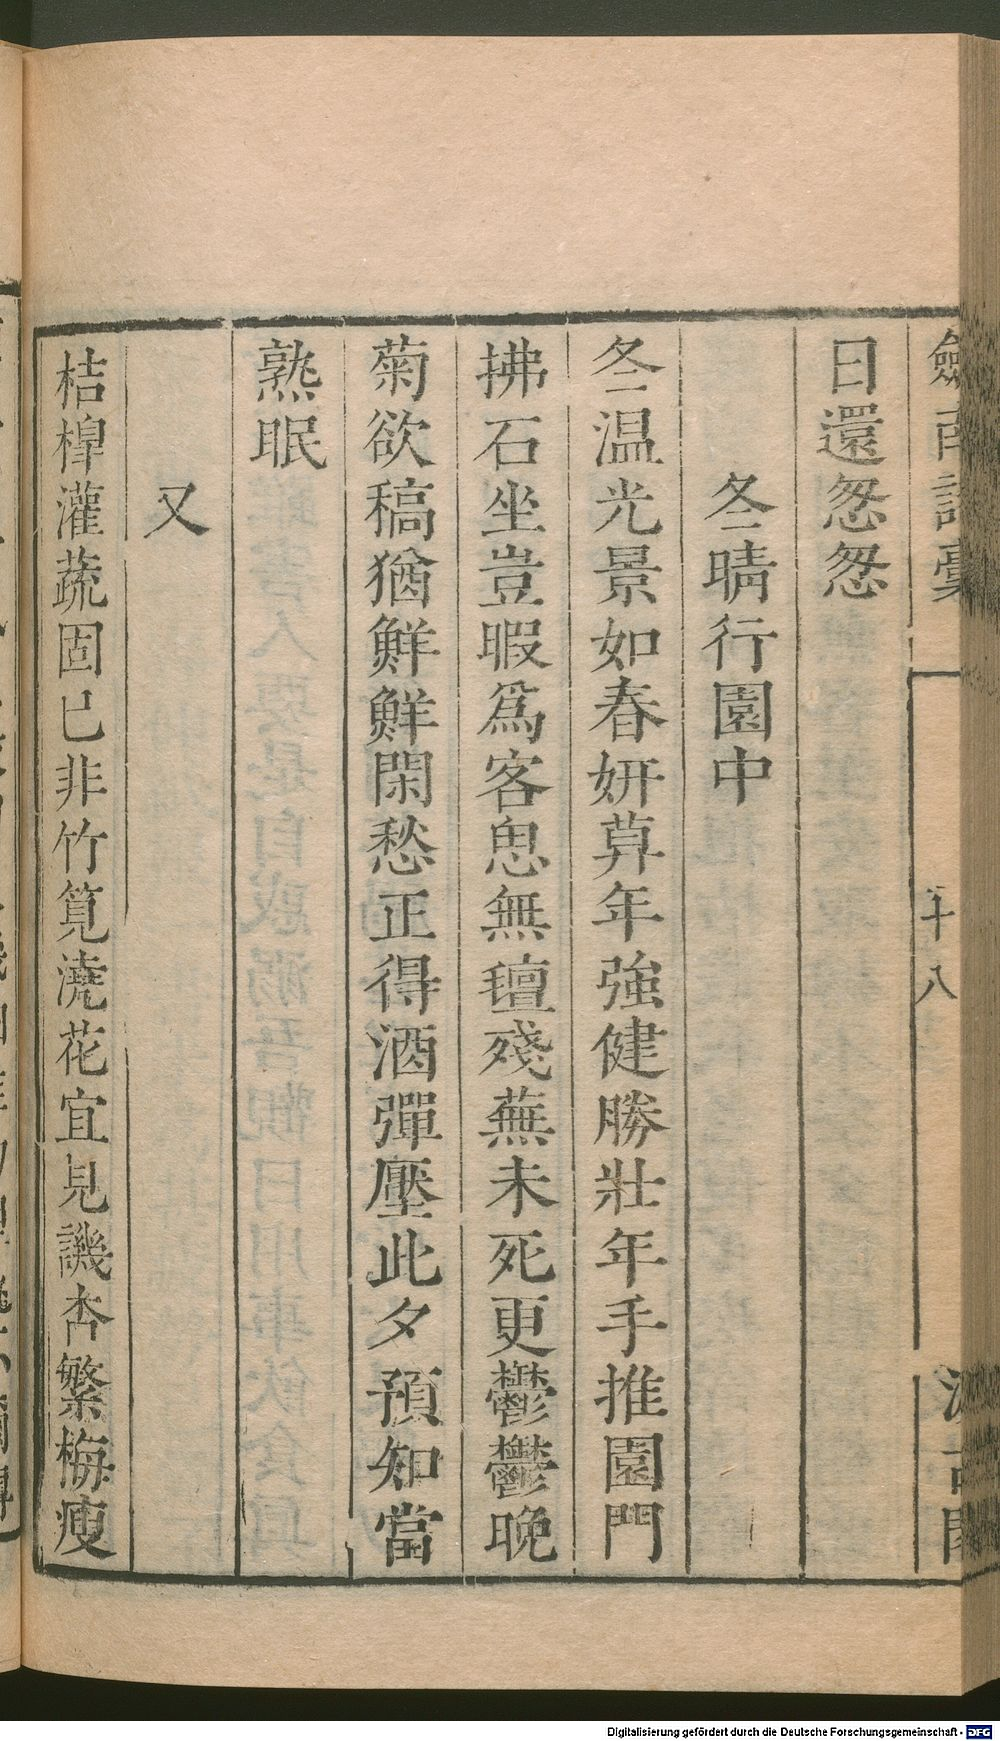 日還怱怱
冬晴行園中
冬温光景如春妍算年強健勝壯年手推園門
拂石坐豈暇爲客思無氊殘蕪未死更鬱鬱晚
菊欲稿猶鮮鮮閑愁正得酒彈壓此夕預知當
熟眠
又
桔槹灌蔬固已非竹筧澆花宜見譏杏繁梅瘦
劍南詩稾
十八
Digitalisierung gefördert durch die Deutsche Forschungsgemeinschaft - DFG